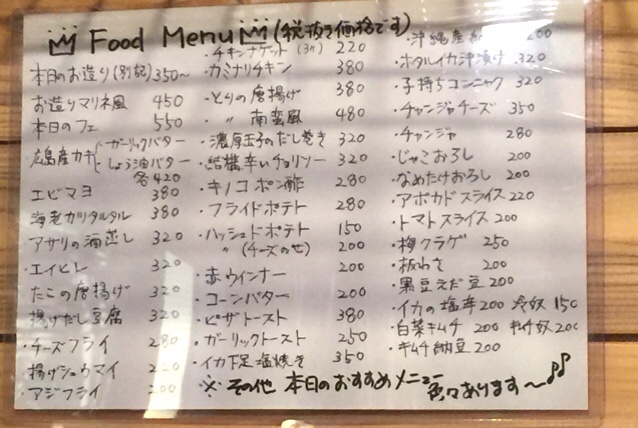 Food Menu (税抜き価格です)
本日のお造り(別記) 350~
お造りマリネ風 450
本日のフェ 550
広島産カキ ガーリックバター
しょう油バター
各420
エビマヨ 380
海老カリタルタル 380
アサリの酒蒸し 320
・エイヒレ 320
たこの唐揚げ 320
揚げだし豆腐 320
・チーズフライ 280
揚げシュウマイ 220
・アジフライ 200
・チキンナゲット(3ケ) 220
・カミナリチキン 380
・とりの唐揚げ 380
・〃 南蛮風 480
・濃厚玉子のだし巻き 320
・結構辛いチョリソー 320
・キノコポン酢 280
・フライドポテト 280
・ハッシュドポテト 150
〃 (チーズのせ) 200
・赤ウインナー 200
・コーンバター 200
・ピザトースト 380
・ガーリックトースト 250
・イカ下足塩焼き 350
・沖縄産 200
・ホタルイカ沖漬け 320
・子持ちコンニャク 320
・チャンジャチーズ 350
・チャンジャ 280
・じゃこおろし 200
・なめたけおろし 200
・アボカドスライス 220
・トマトスライス 200
・梅クラゲ 250
・板わさ 200
・黒豆えだ豆 200
・イカの塩辛 200 冷奴 150
・白菜キムチ 200 キムチ奴 200
・キムチ納豆 200
※その他 本日のおすすめメニュー
色々あります~♪♪